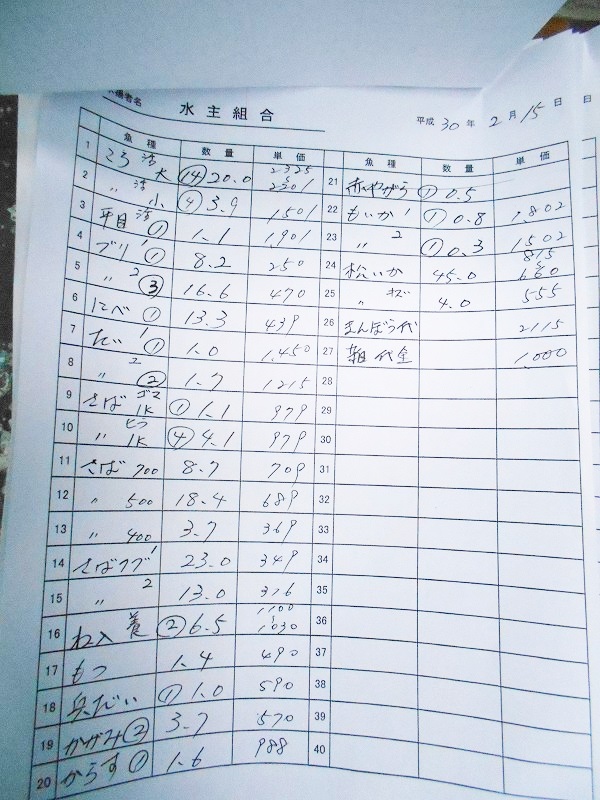 水主組合
平成 30 年 2 月 15 日
魚種 数量 単価
1 こち 活
2 〃 活 大 ⑭ 20.0 2325 2201
3 〃 小 ④ 3.9 1501
4 平目 活 ① 1.1 1,901
5 ブリ 1 ① 8.2 250
6 〃 2 ③ 16.6 470
7 にべ ① 13.3 439
8 たい 1 ① 1.0 1,450
9 〃 2 ② 1.7 1215
10 さば ゴマ 1K ① 1.1 979
11 〃 ヒラ 1K ④ 4.1 979
12 さば 700 8.7 709
13 〃 500 18.4 689
14 〃 400 3.7 369
15 さば 1 23.0 349
16 〃 2 13.0 376
17 養 ② 6.5 1100 1030
18 もつ 1.4 490
19 だい ① 1.0 590
20 かがみ ② 3.7 570
からす ① 1.6 988
魚種 数量 単価
21 赤やがら ① 0.5
22 もいか 1 ① 0.8 1,802
23 〃 2 ① 0.3 1502
24 松いか 45.0 815 680
25 〃 キズ 4.0 555
26 まんぼう代 2115
27 箱代金 1,000
28
29
30
31
32
33
34
35
36
37
38
39
40